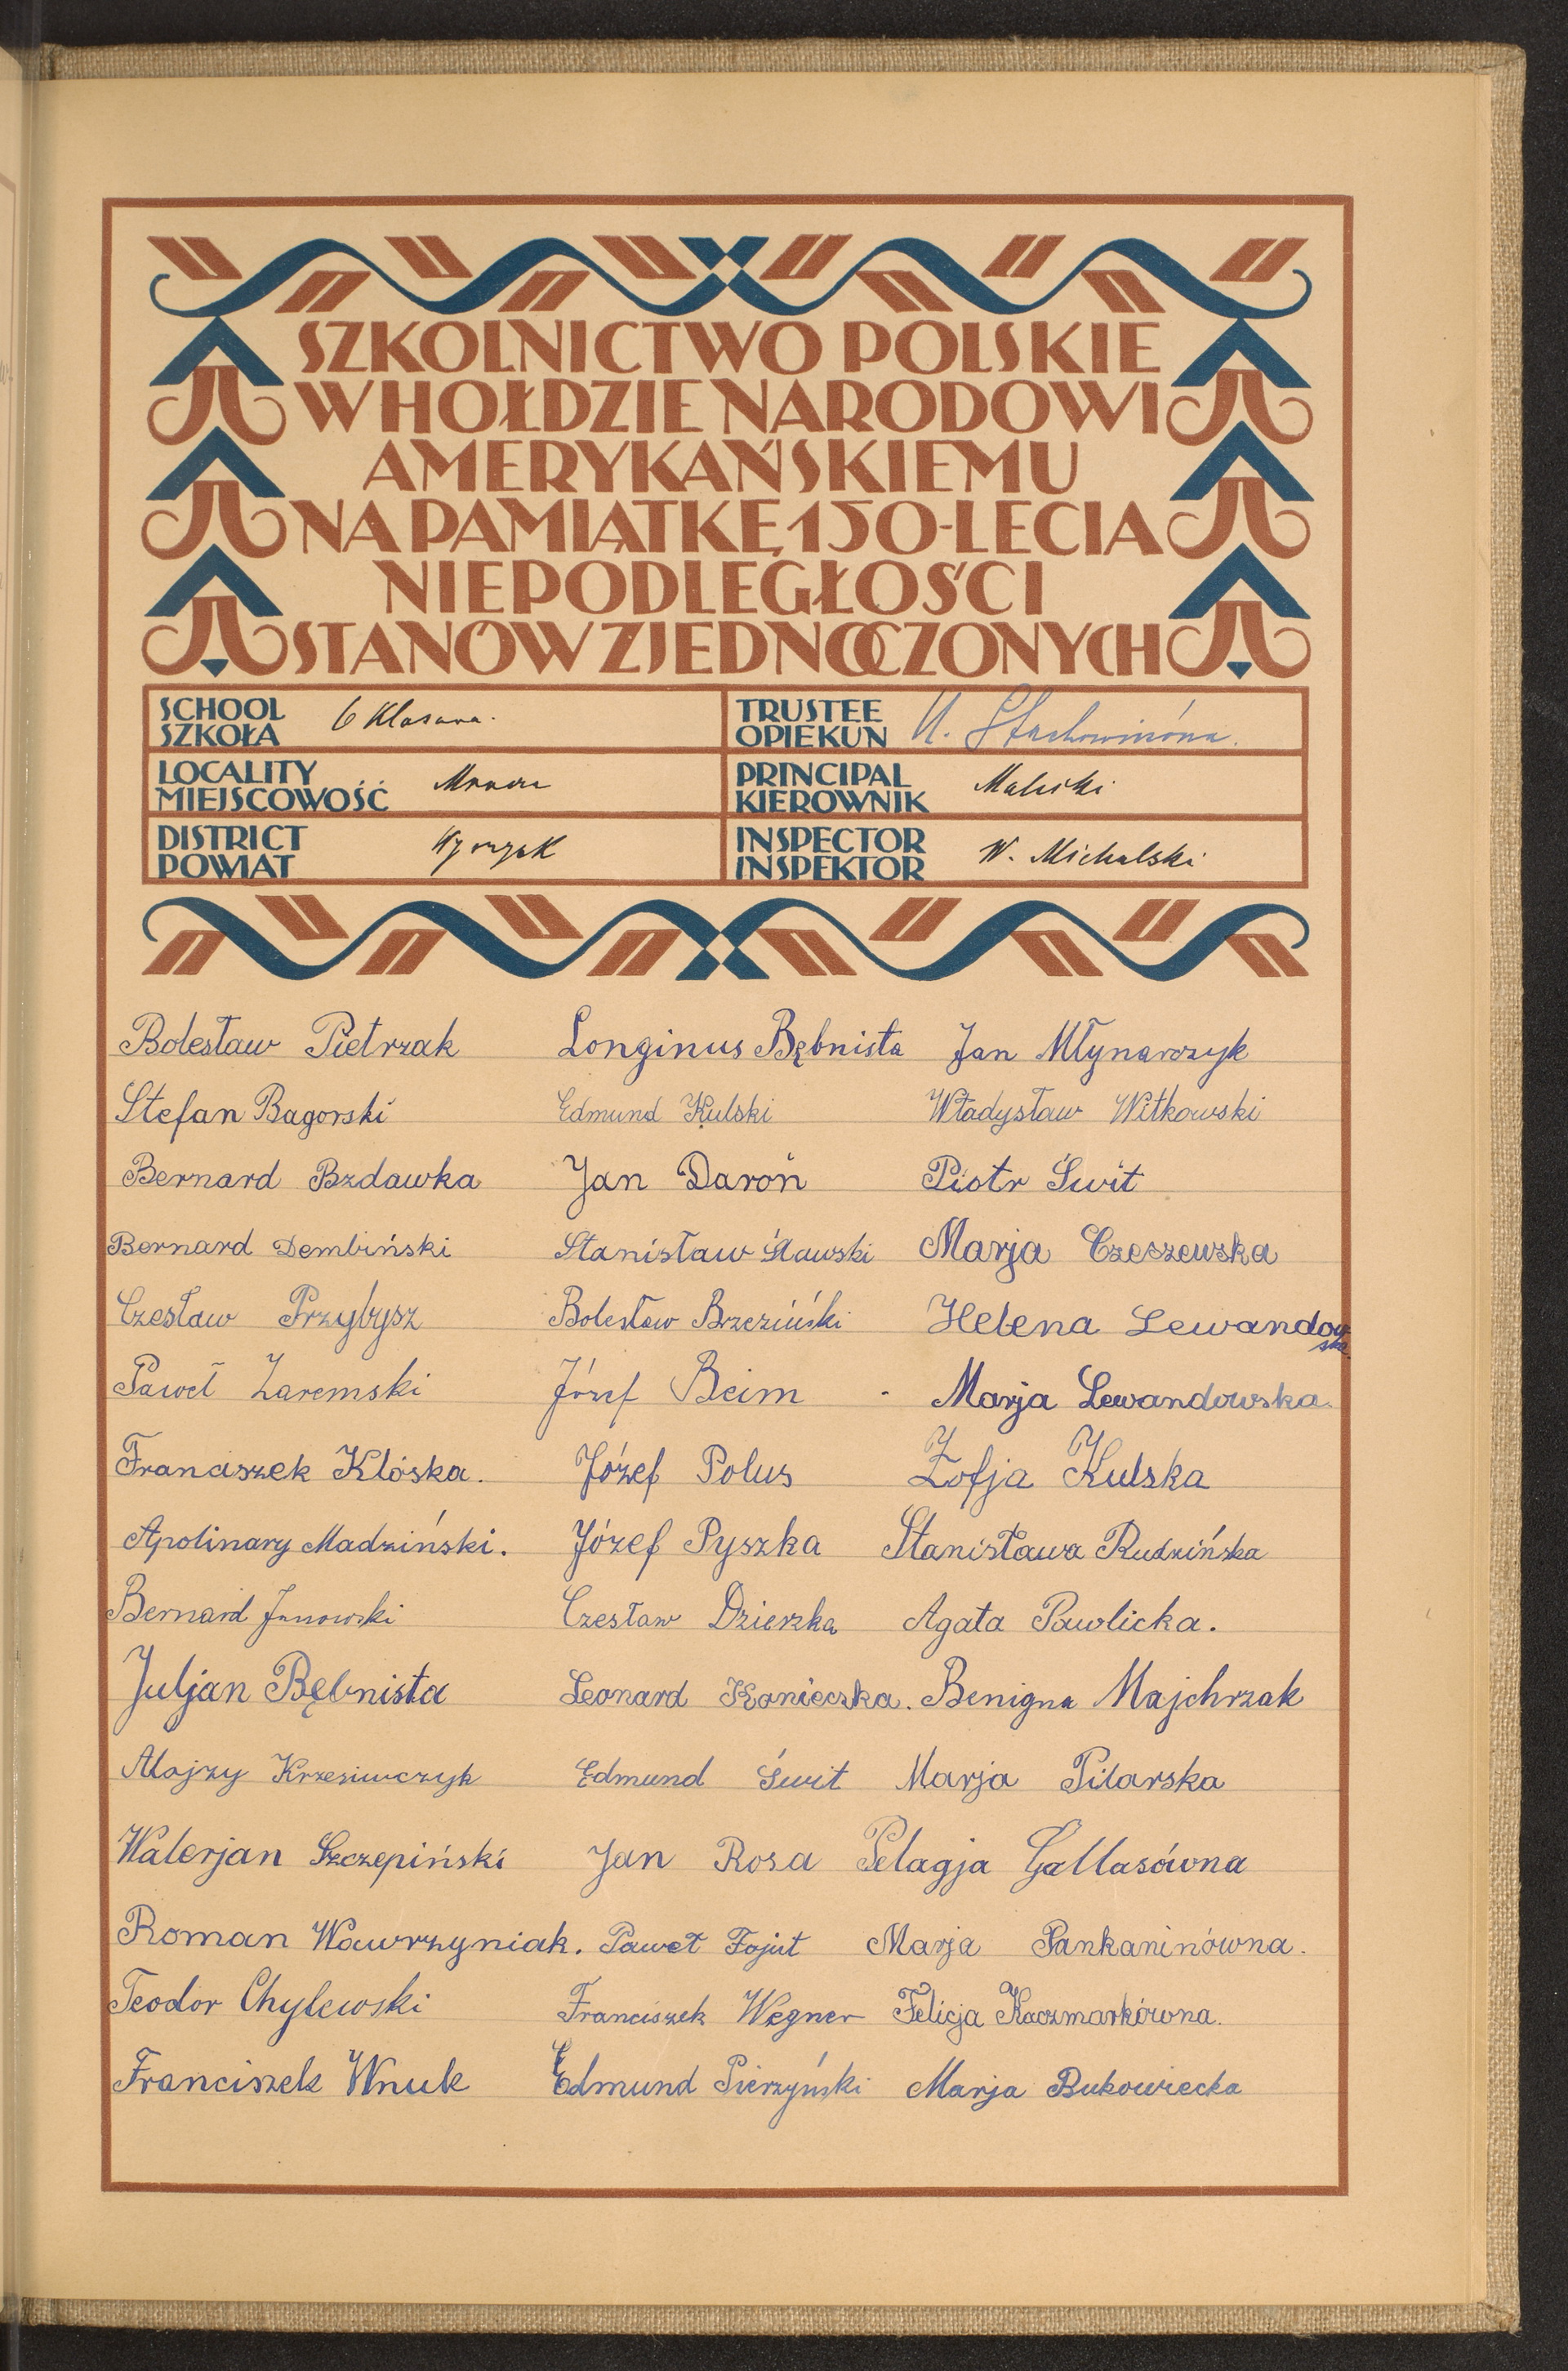 SZKOLNICTWO POLSKIE
W HOŁDZIE NARODOWI
AMERYKAŃSKIEMU
NA PAMIĄTKĘ 150-LECIA
NIEPODLEGŁOŚCI
STANÓW ZJEDNOCZONYCH
SCHOOL
SZKOŁA 6 Klasowa.
TRUSTEE
OPIEKUN
LOCALITY
MIEJSCOWOŚĆ
PRINCIPAL
KIEROWNIK Maliski
DISTRICT
POWIAT Wyrzysk
INSPECTOR
INSPEKTOR W. Michalski
Bolesław Pietrzak Longinus Bębnista Jan Młynarczyk
Stefan Bagorski Edmund Kulski Władysław Witkowski
Bernard Bzdawka Jan Daroń Piotr Świt
Bernard Dembiński Stanisław Sławski Marja Czeszewska
Czesław Przybysz Bolesław Brzeziński Helena Lewandowska
Paweł Zaremski Józef Beim Marja Lewandowska.
Franciszek Klóska. Józef Polus Zofja Kulska
Apolinary Madziński. Józef Pyszka Stanisława Rudzińska
Bernard Janowski Czesław Dzierzka Agata Pawlicka.
Juljan Bębnista Leonard Konieczka. Benigna Majchrzak
Alojzy Edmund Świt Marja Pilarska
Walerjan Szczepiński Jan Rosa Pelagja Gallasówna
Roman Wawrzyniak. Paweł Fojut Marja Pankaninówna.
Teodor Chylewski Franciszek Wegner Felicja Kaczmarkówna.
Franciszek Wnuk Edmund Pierzyński Marja Bukowiecka